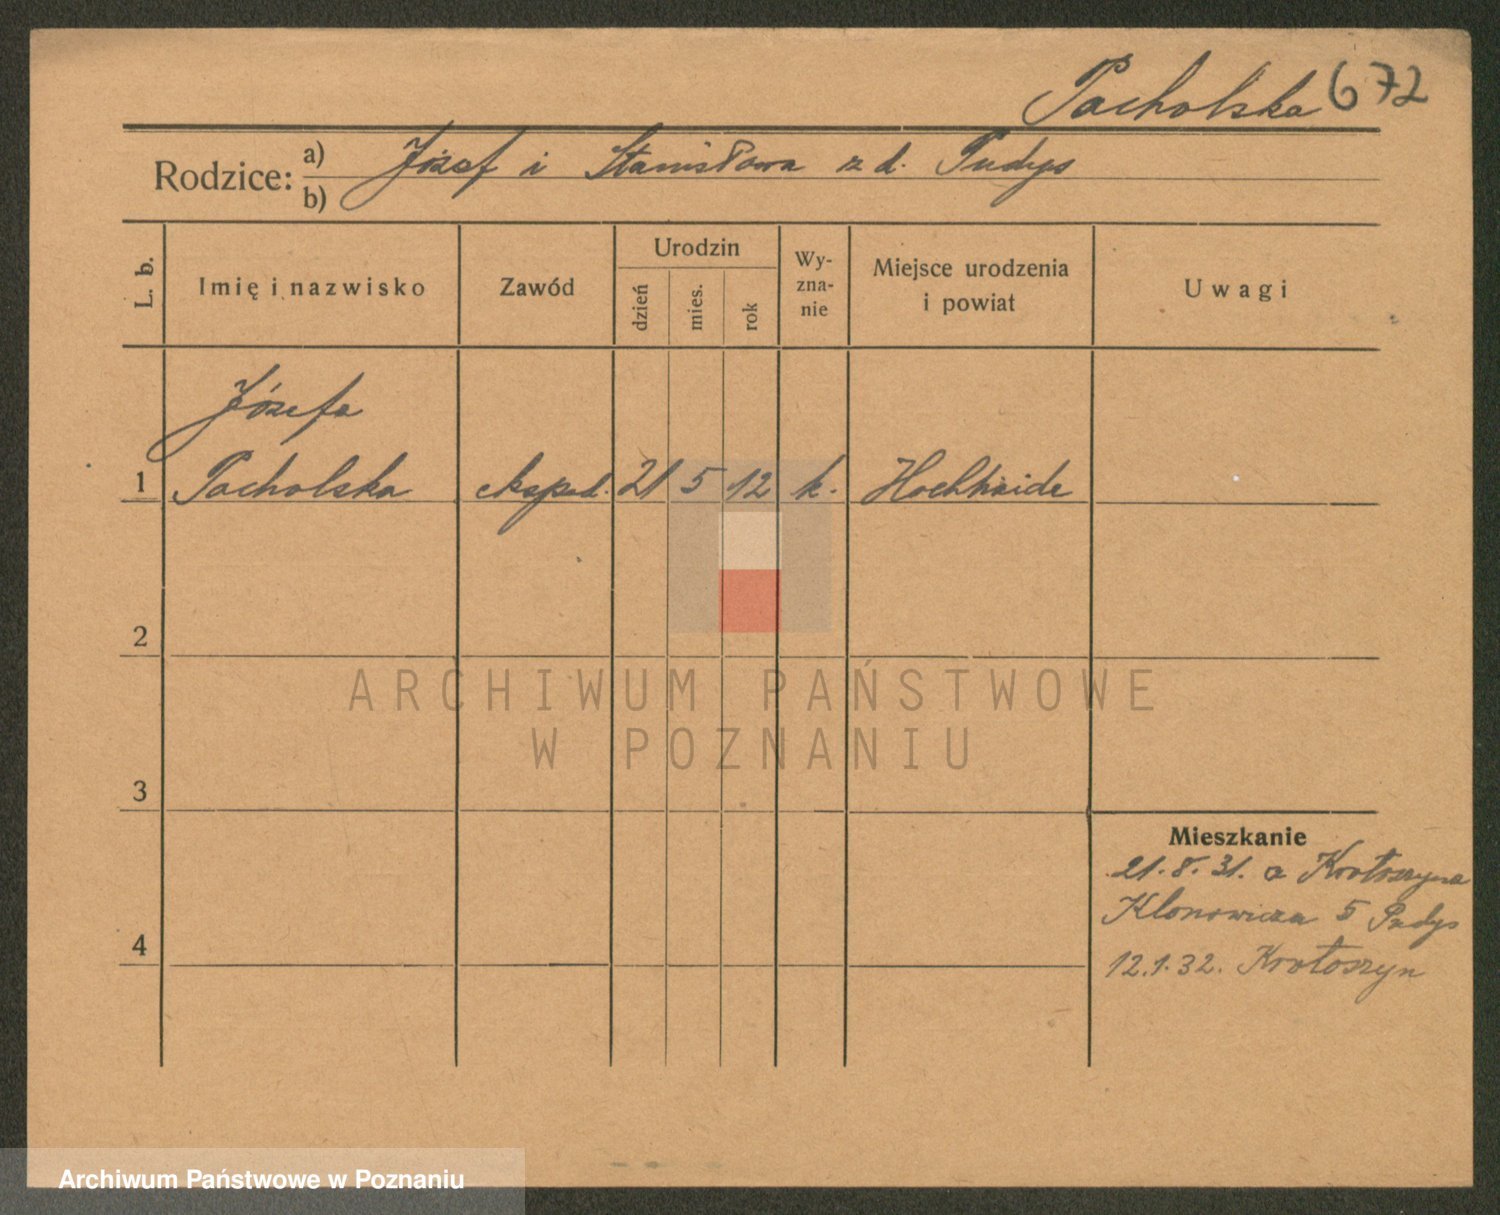 Pacholska 672
Rodzice: a) Józef i Stanisława z d. Pudys
b)
L. b.
Imię i nazwisko
Zawód
Urodzin
dzień
mies.
rok
Wy-
zna-
nie
Miejsce urodzenia
i powiat
Uwagi
Józefa
1 Pacholska eksped. 21 5 12 k. Hochheide
2
ARCHIWUM PAŃSTWOWE
W POZNANIU
3
Mieszkanie
21.8.31. z Krotoszyna
Klonowicza 5 Pudys
4
12.1.32. Krotoszyn
Archiwum Państwowe w Poznaniu